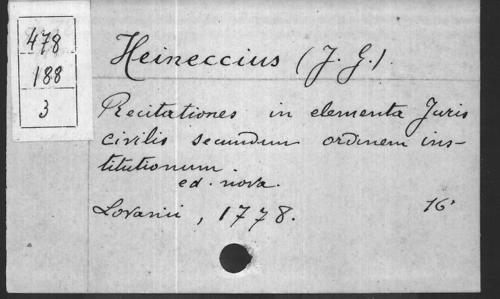 478
188
3
Heineccius (J. G.)
Recitationes in elementa Juris
civilis secundum ordinem ins-
titutionum.
ed. nova.
Lovanii, 1778. 16°